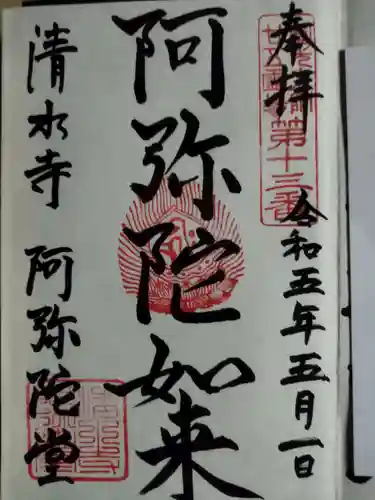 奉拝
第十三番
令和五年五月一日
阿弥陀如来
清水寺 阿弥陀堂